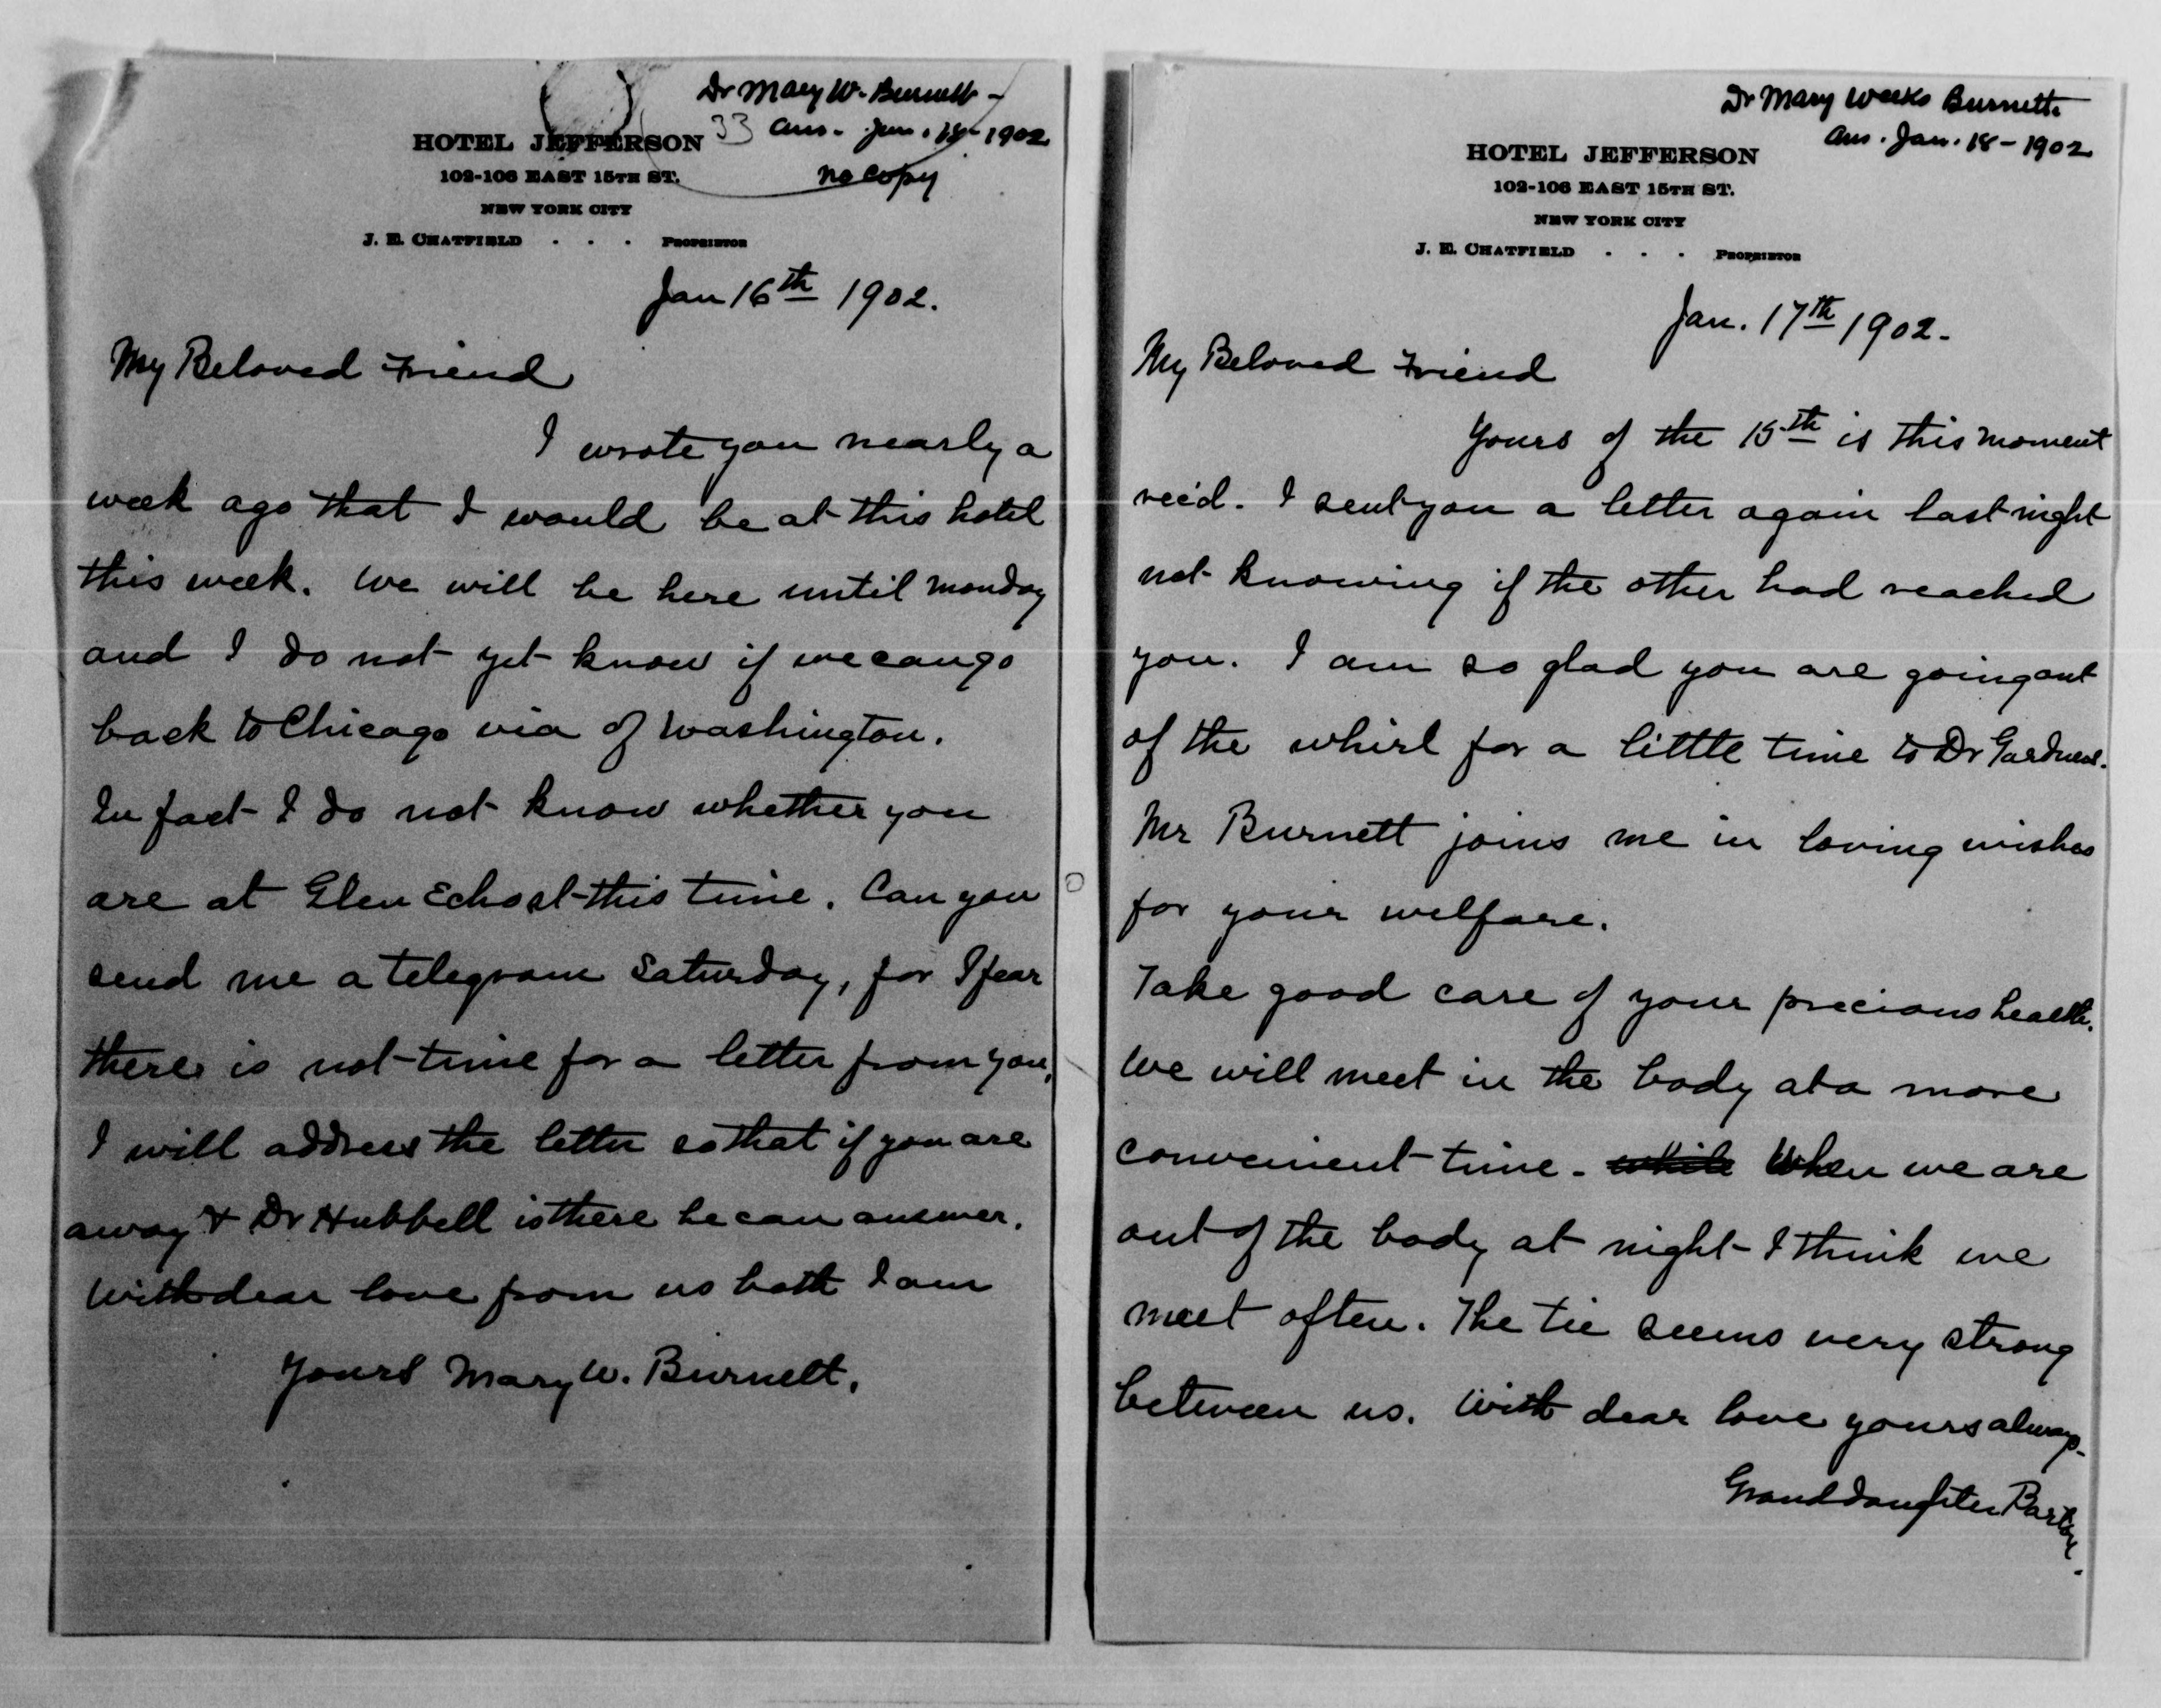 Dr Mary W. Burnett -
33 ans. Jan. 18 - 1902
no copy
HOTEL JEFFERSON
102-106 EAST 15TH ST.
NEW YORK CITY
J. E. CHATFIELD . . . PROPRIETOR
Jan 16th 1902.
My Beloved Friend
I wrote you nearly a
week ago that I would be at this hotel
this week. We will be here until Monday
and I do not yet know if we can go
back to Chicago via of Washington.
In fact I do not know whether you
are at Glen Echo at this time. Can you
send me a telegram Saturday, for I fear
there is not time for a letter from you.
I will address the letter so that if you are
away & Dr Hubbell is there he can answer.
With dear love from us both I am
Yours Mary W. Burnett.
Dr Mary Weeks Burnett.
Ans. Jan. 18 - 1902
HOTEL JEFFERSON
102-106 EAST 15TH ST.
NEW YORK CITY
J. E. CHATFIELD . . . PROPRIETOR
Jan. 17th 1902.
My Beloved Friend
Yours of the 15th is this moment
rec'd. I sent you a letter again last night
not knowing if the other had reached
you. I am so glad you are going out
of the whirl for a little time to Dr Gardner.
Mr Burnett joins me in loving wishes
for your welfare.
Take good care of your precious health.
We will meet in the body at a more
convenient time. while When we are
out of the body at night I think we
meet often. The tie seems very strong
between us. With dear love yours always.
Granddaughter Barton.